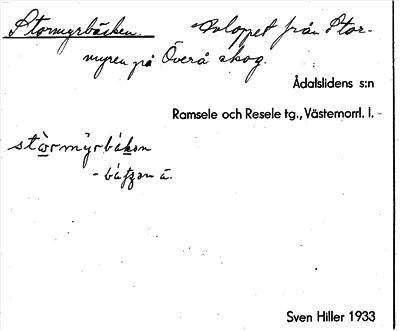 Stormyrbäcken. Avloppet från Stor-
myren på Överå skog.
Ådalslidens s:n
Ramsele och Resele tg., Västernorrl. l.
stòrmýrbäkən
- bäƫʒən ä.
Sven Hiller 1933